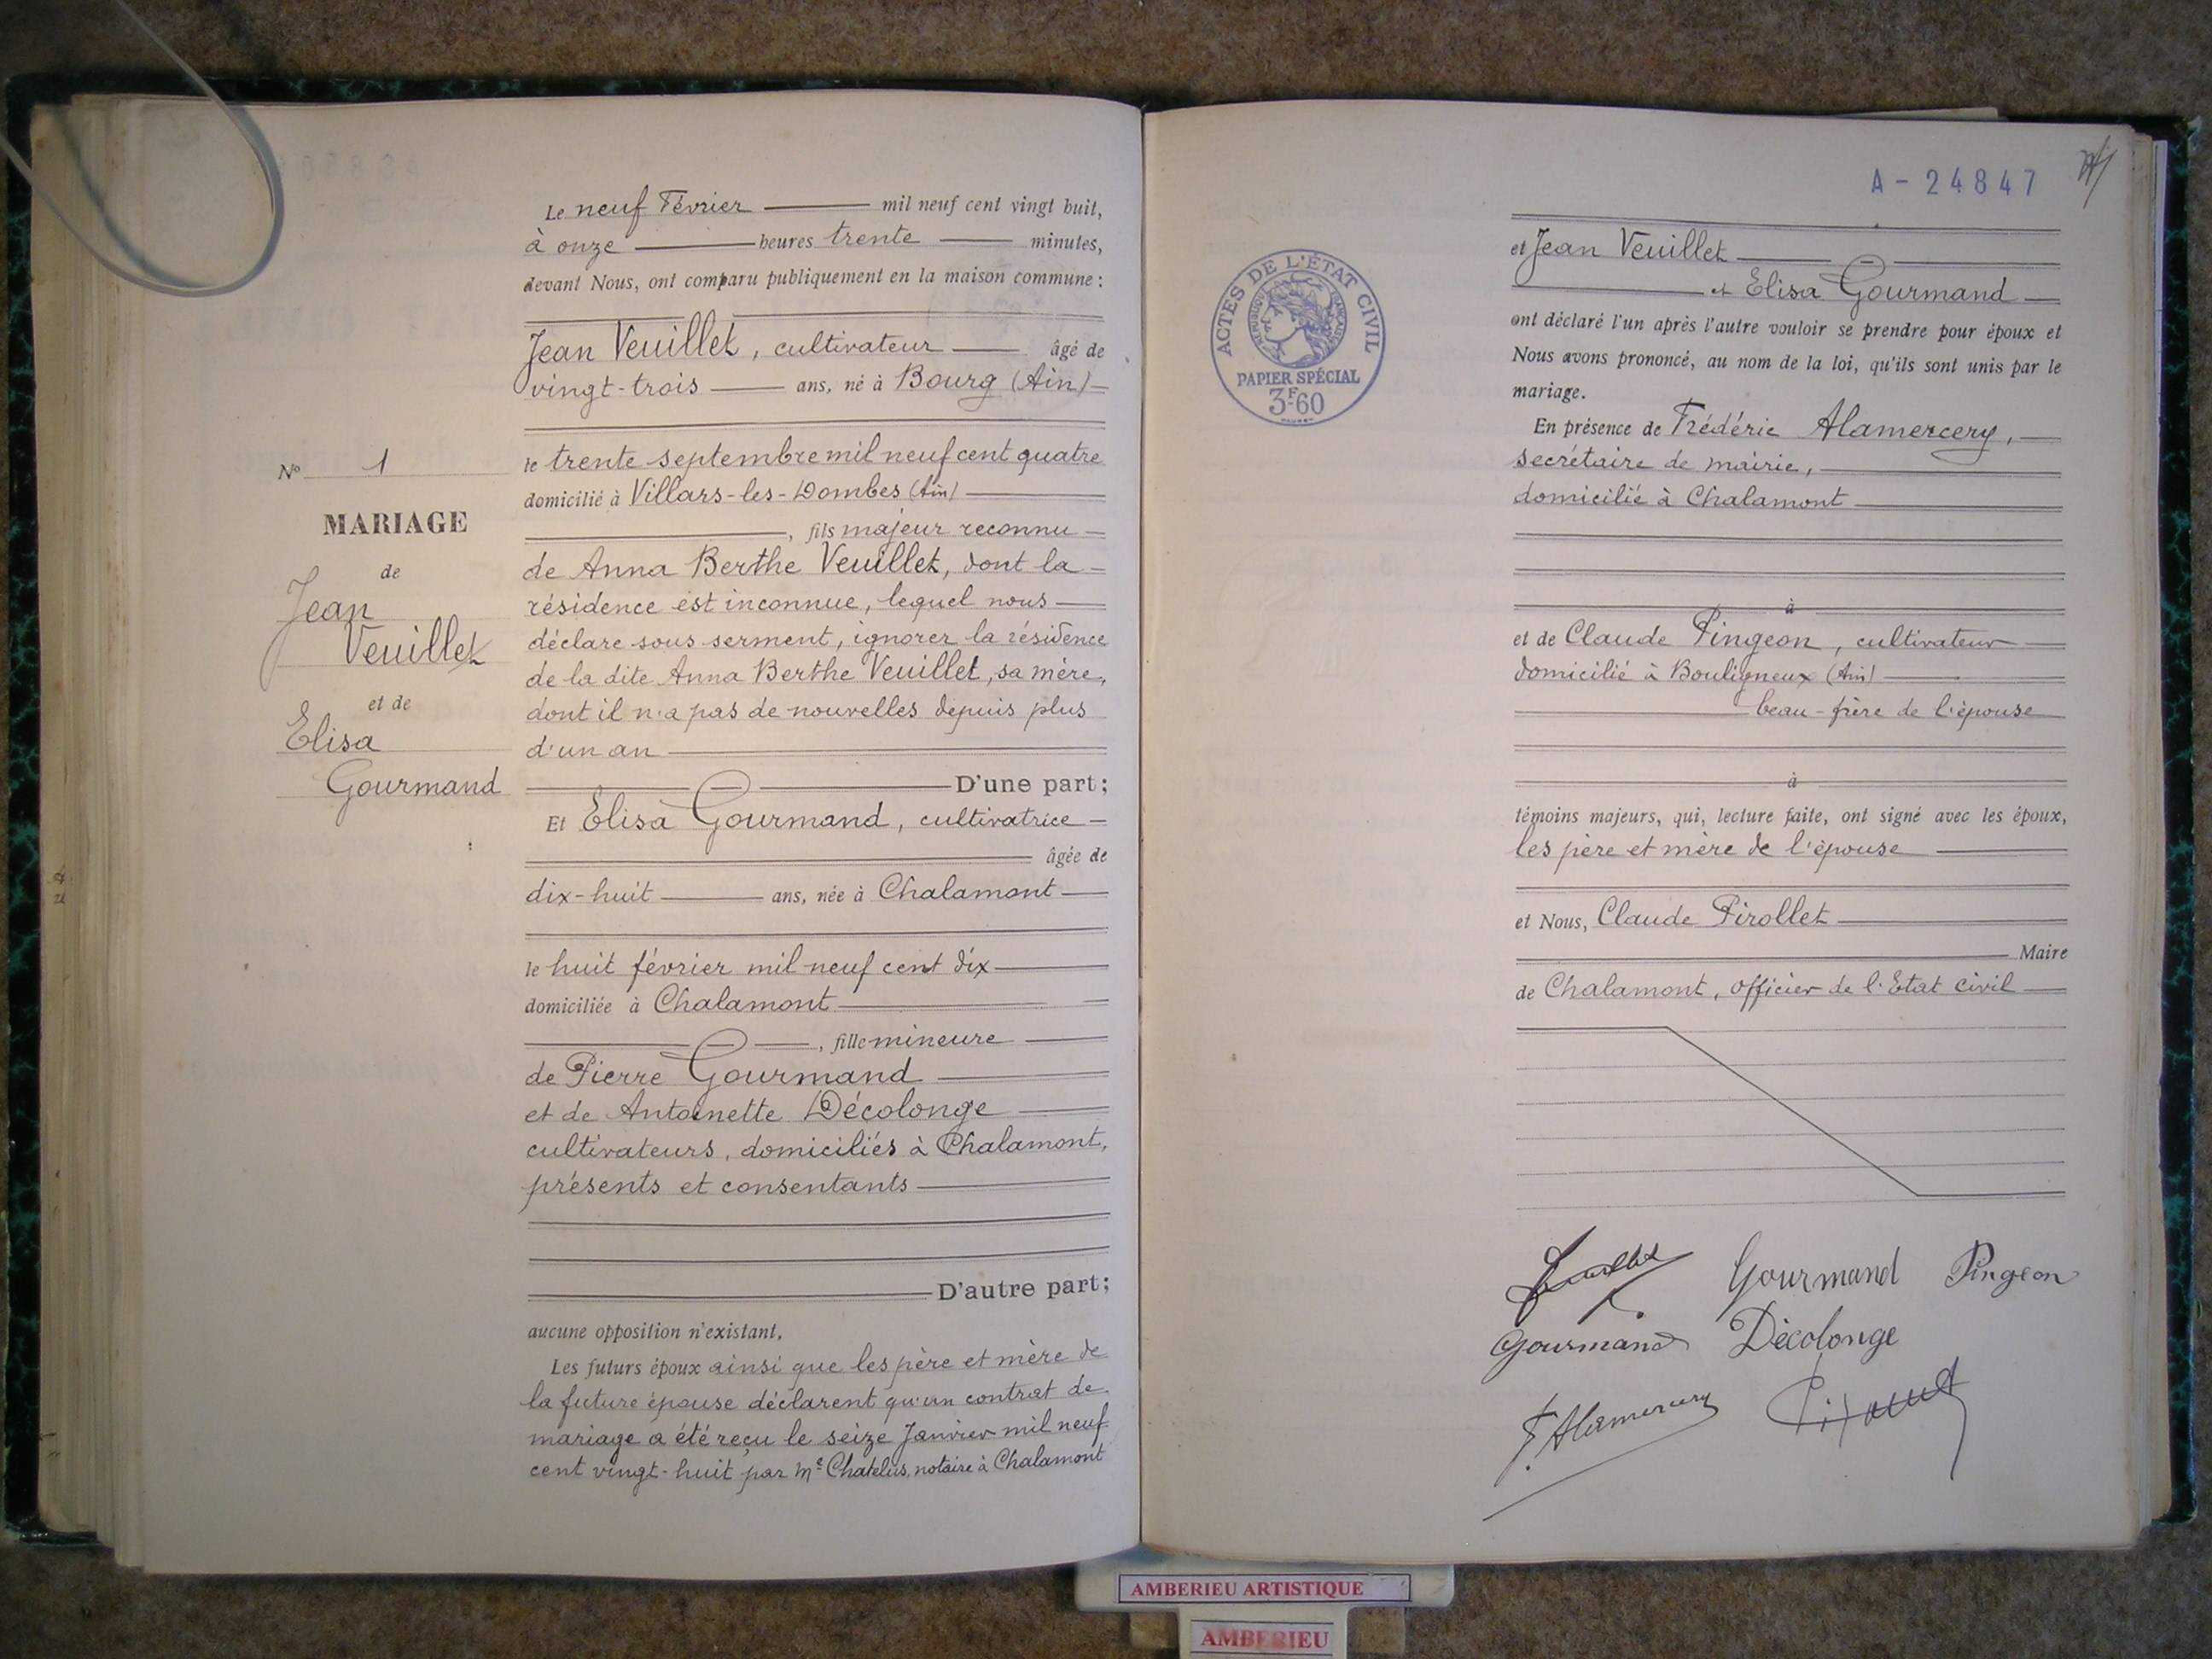 Le neuf Février mil neuf cent vingt huit,
à onze heures trente minutes,
devant Nous, ont comparu publiquement en la maison commune :
Jean Veuillet, cultivateur âgé de
vingt-trois ans, né à Bourg (Ain)
le trente septembre mil neuf cent quatre
domicilié à Villars-les-Dombes (Ain)
, fils majeur reconnu
de Anna Berthe Veuillet, dont la
résidence est inconnue, lequel nous
déclare sous serment, ignorer la résidence
de la dite Anna Berthe Veuillet, sa mère,
dont il n'a pas de nouvelles depuis plus
d'un an
D'une part ;
Et Elisa Gourmand, cultivatrice
âgée de
dix-huit ans, née à Chalamont
le huit février mil neuf cent dix
domiciliée à Chalamont
, fille mineure
de Pierre Gourmand
et de Antoinette Décolonge
cultivateurs, domiciliés à Chalamont,
présents et consentants
D'autre part ;
aucune opposition n'existant.
Les futurs époux ainsi que les père et mère de
la future épouse déclarent qu'un contrat de
mariage a été reçu le seize Janvier mil neuf
cent vingt-huit par Me Chatelus, notaire à Chalamont
No 1
MARIAGE
de
Jean
Veuillet
et de
Elisa
Gourmand
A-24847
ACTES DE L'ÉTAT CIVIL
RÉPUBLIQUE FRANÇAISE
PAPIER SPÉCIAL
3F60
et Jean Veuillet
et Elisa Gourmand
ont déclaré l'un après l'autre vouloir se prendre pour époux et
Nous avons prononcé, au nom de la loi, qu'ils sont unis par le
mariage.
En présence de Frédéric Alamercery,
secrétaire de mairie,
domicilié à Chalamont
à
et de Claude Pingeon, cultivateur
domicilié à Bouligneux (Ain)
beau-frère de l'épouse
à
témoins majeurs, qui, lecture faite, ont signé avec les époux,
les père et mère de l'épouse
et Nous, Claude Pirollet
Maire
de Chalamont, officier de l'Etat civil
Veuillet Gourmand Pingeon
Gourmand Décolonge
F. Alamercery
AMBERIEU ARTISTIQUE
AMBERIEU